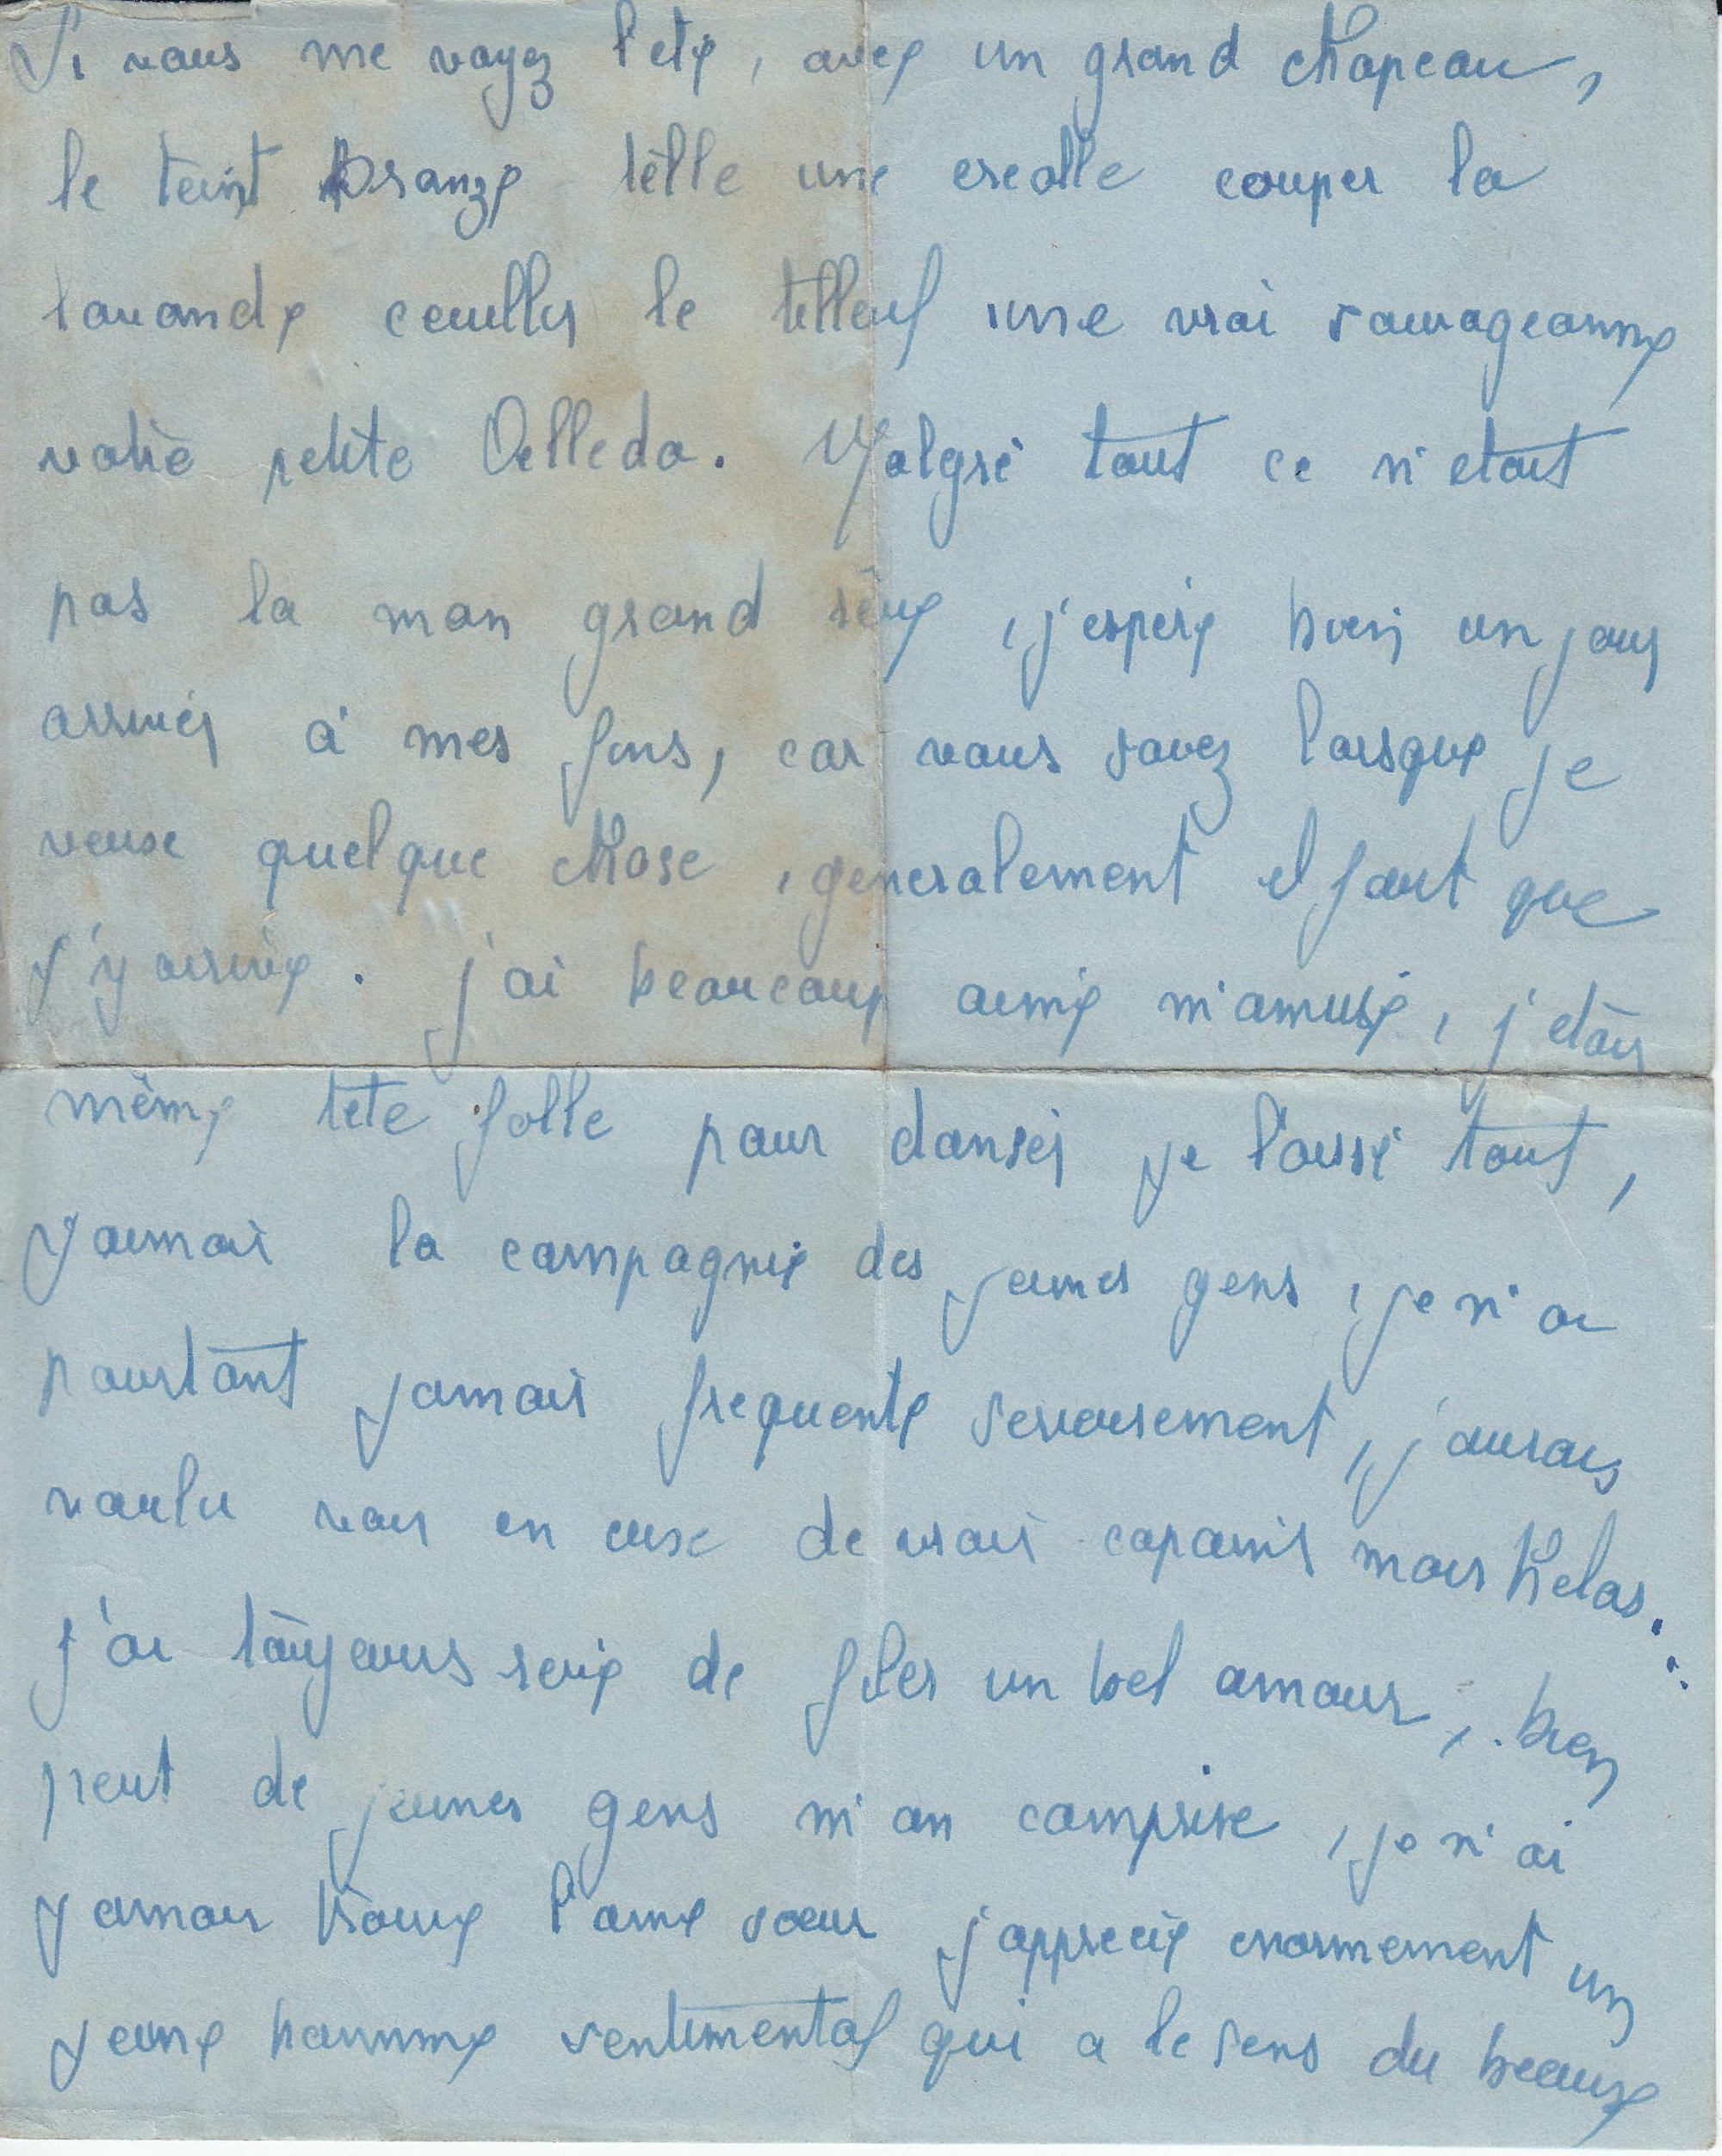 Si vous me voyez l'eté, avec un grand chapeau,
le teint bronzé telle une creolle couper la
lavande ceuiller le tilleul une vrai sauvageonne
votre petite Velleda. Malgré tout ce n'etait
pas la mon grand rêve, j'espere bien un jour
arriver à mes fins, car vous savez lorsque je
veux quelque chose, generalement il faut que
j'y arrive. j'ai beaucoup aimé m'amusé, j'etais
même tete folle pour danser je laissé tout,
j'aimais la compagnie des jeunes gens, je n'ai
pourtant jamais frequenté serieusement, j'aurais
voulu voir en eux de vrais copains mais helas...
j'ai toujours revé de filer un bel amour, bien
peut de jeunes gens m'on comprise, je n'ai
jamais trouvé l'ame soeur j'apprecie enormement un
jeune homme sentimental qui a le sens du beaux